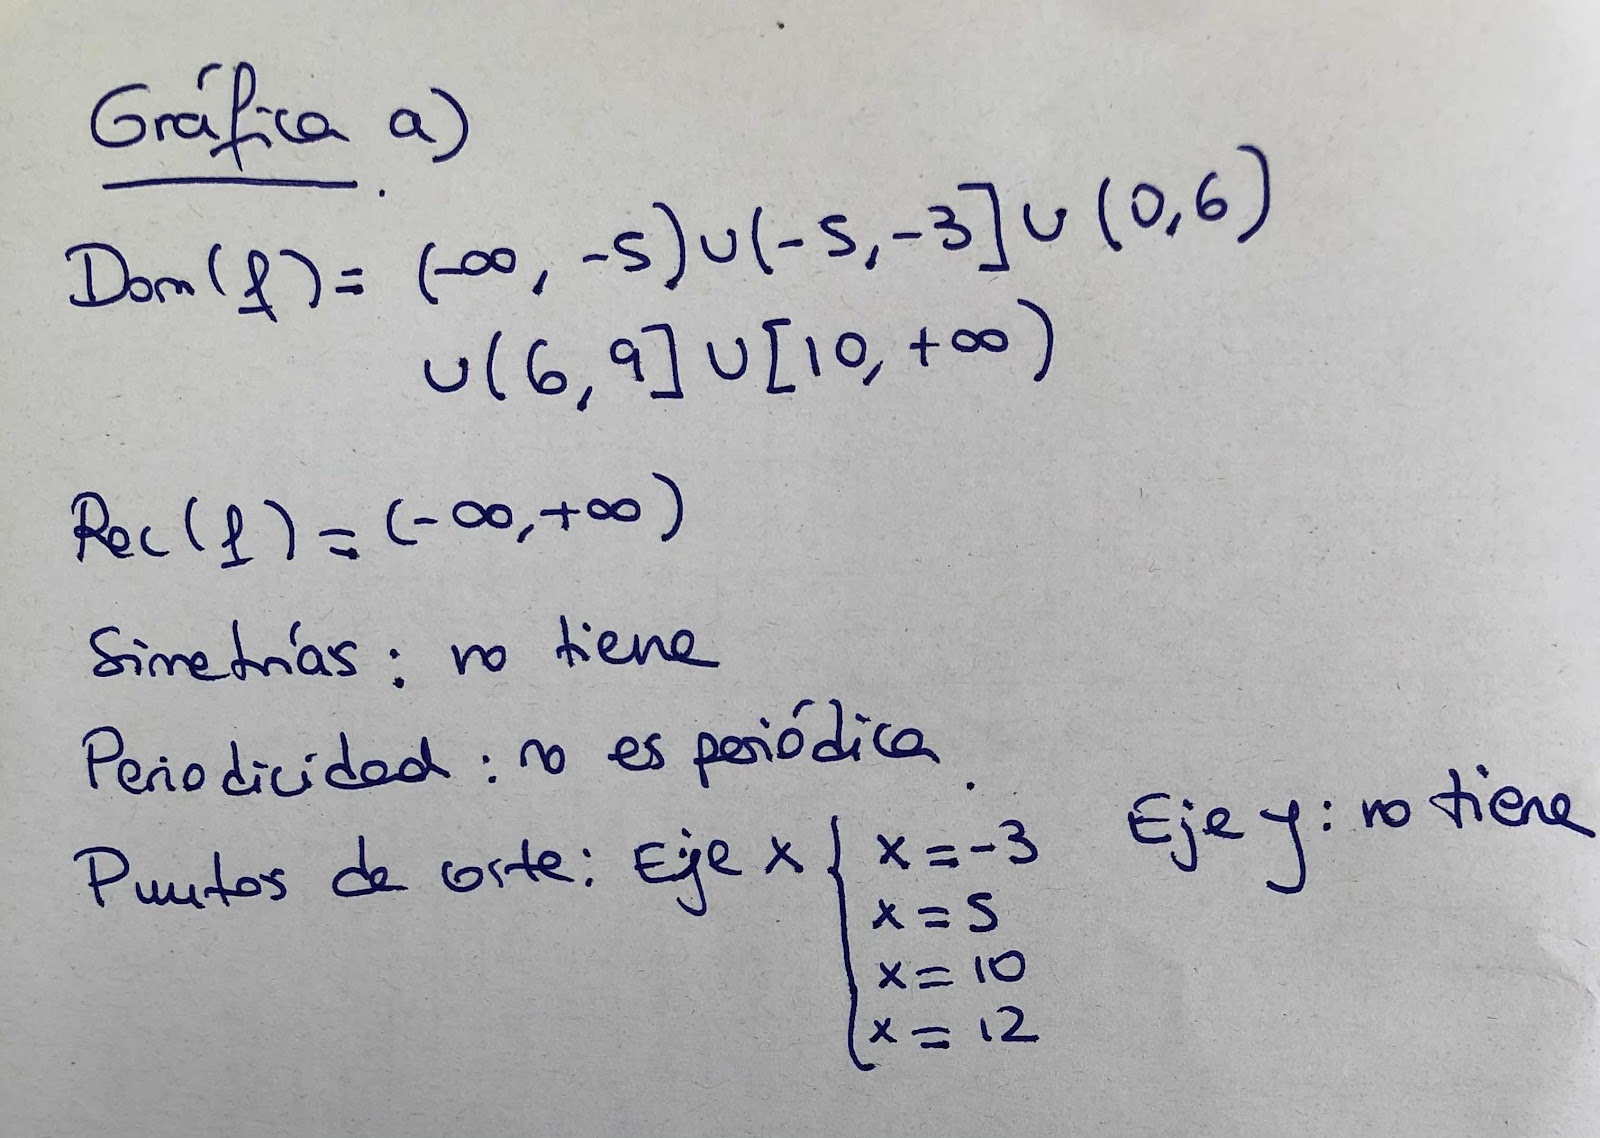 Gráfica a)
Dom(f) = (-∞, -5) ∪ (-5, -3] ∪ (0, 6)
∪ (6, 9] ∪ [10, +∞)
Rec(f) = (-∞, +∞)
Simetrías: no tiene
Periodicidad: no es periódica.
Puntos de corte: Eje x { x = -3 Eje y: no tiene
x = 5
x = 10
x = 12